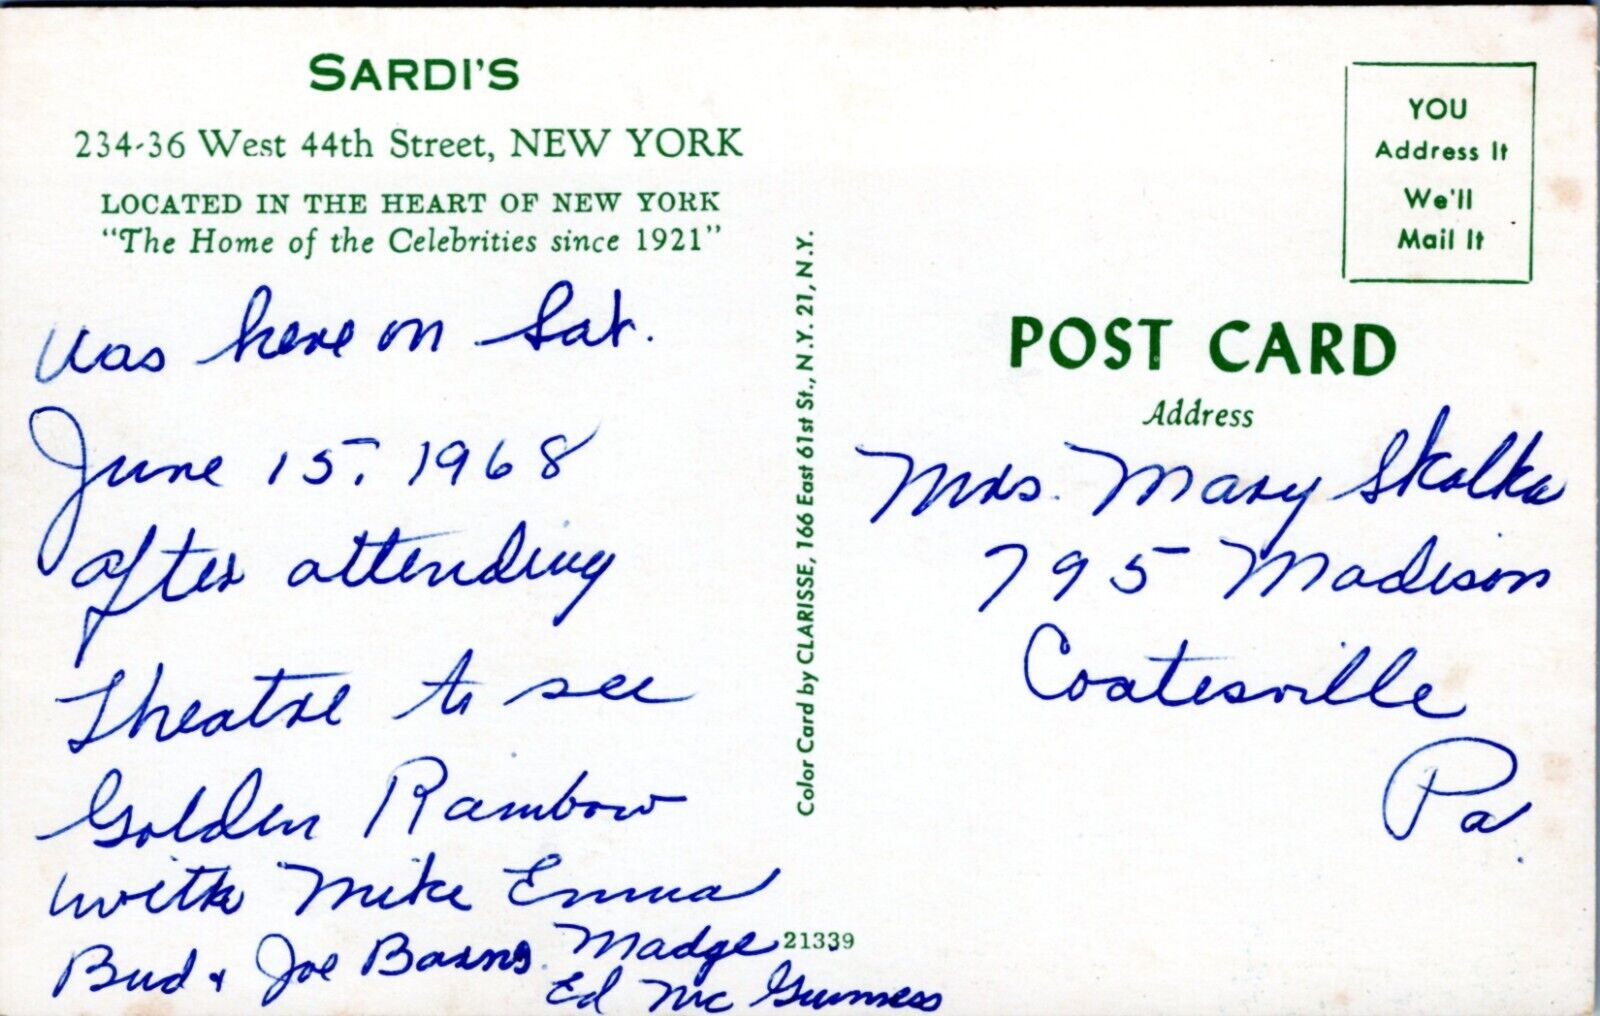 SARDI'S
234-36 West 44th Street, NEW YORK
LOCATED IN THE HEART OF NEW YORK
"The Home of the Celebrities since 1921"
Was here on Sat.
June 15, 1968
after attending
Theatre to see
Golden Rainbow
with Mike Emma
Bud & Joe Barns. Madge
Ed Mc Guinness
Color Card by CLARISSE, 166 East 61st St., N.Y. 21, N.Y.
21339
YOU
Address It
We'll
Mail It
POST CARD
Address
Mrs. Mary Skalka
795 Madison
Coatesville
Pa.